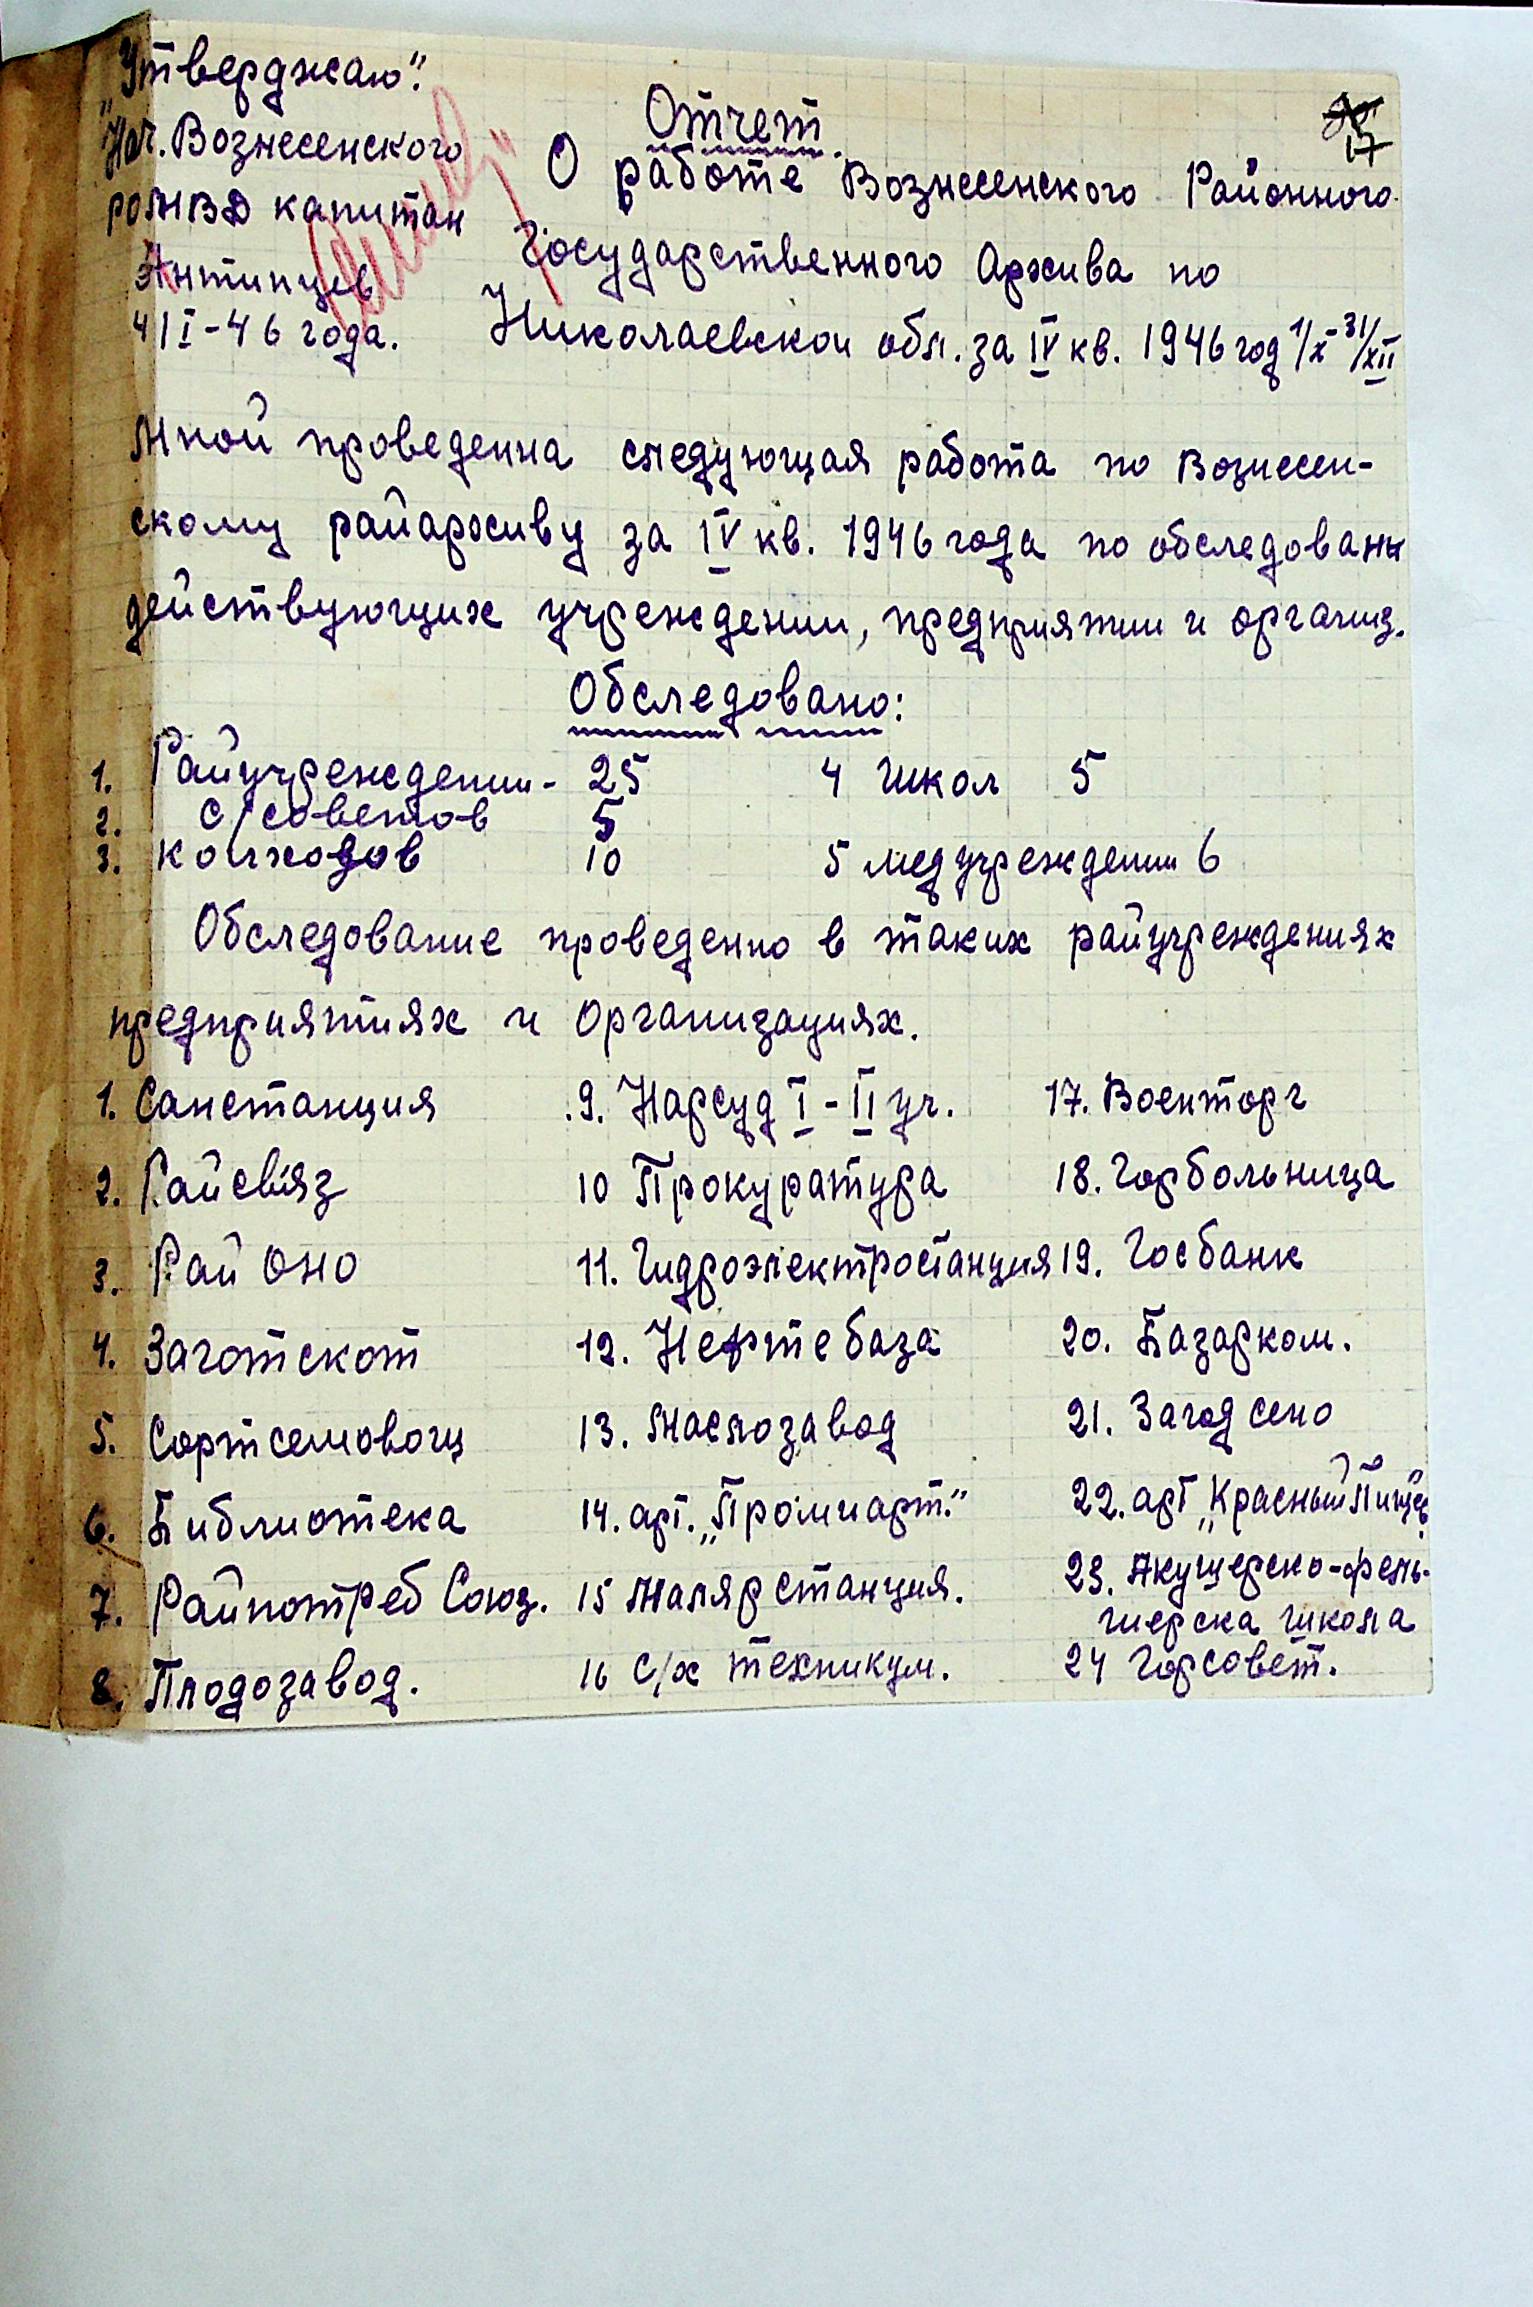 „Утверджаю".
Нач. Вознесенского
РоМВД капитан
Антипцев
4/I-46 года.
17
Отчет.
О работе Вознесенского Районного
Государственного Архива по
Николаевскои обл. за IV кв. 1946 год 1/X-31/XII
Мной проведенна следующая работа по Вознесен-
скому райархиву за IV кв. 1946 года по обследовани
действующих учреждении, предприятии и организ.
Обследовано:
1. Райучреждении - 25 4 школ 5
2. с/советов 5
3. колхозов 10 5 медучреждении 6
Обследование проведенно в таких райучреждениях
предприятиях и организациях.
1. Санстанция 9. Нарсуд I-II уч. 17. Военторг
2. Райсвiяз 10 Прокуратура 18. Горбольница
3. Рай ОНО 11. Гидроэлектростанция 19. Госбанк
4. Заготскот 12. Нефтебаза 20. Базарком.
5. Сортсемовощ 13. Маслозавод 21. Загод сено
6. Библиотека 14. арт. „Промиарт." 22. арт „Красный Пищев.
7. Райпотреб Союз. 15 Малярстанция. 23. Акушерско-фель-
шерска школа
8. Плодозавод. 16 с/х техникум. 24 Горсовет.